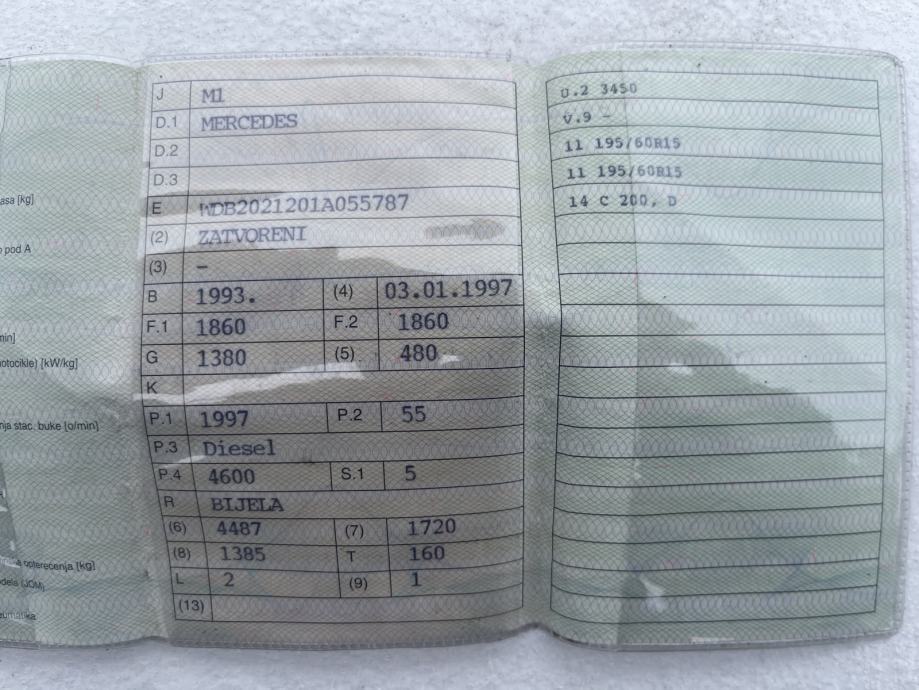 asa [kg]
o pod A
min]
otocikle) [kW/kg]
nja stac. buke [o/min]
opterećenja [kg]
dela (JOM)
eumatika
J M1
D.1 MERCEDES
D.2
D.3
E WDB2021201A055787
(2) ZATVORENI
(3) –
B 1993. (4) 03.01.1997
F.1 1860 F.2 1860
G 1380 (5) 480
K
P.1 1997 P.2 55
P.3 Diesel
P.4 4600 S.1 5
R BIJELA
(6) 4487 (7) 1720
(8) 1385 T 160
L 2 (9) 1
(13)
U.2 3450
V.9 –
11 195/60R15
11 195/60R15
14 C 200, D